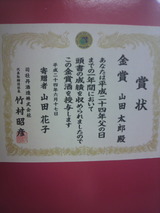 賞状
金賞 山田太郎殿
あなたは平成二十四年父の日
までの一年間において
頭書の成績を収められましたので
この金賞酒を授与します
平成二十四年六月十七日
寄贈者 山田花子
竹村昭彦